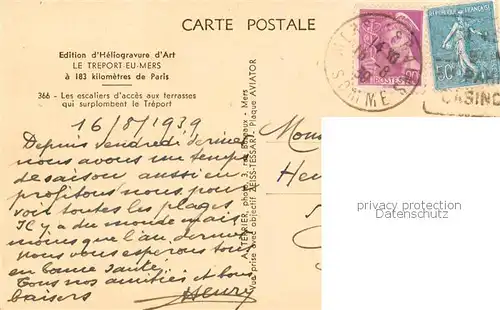 CARTE POSTALE
Edition d'Héliogravure d'Art
LE TREPORT-EU-MERS
à 183 kilomètres de Paris
366 - Les escaliers d'accès aux terrasses
qui surplombent le Tréport
16/8/1939
Depuis vendredi dernier
nous avons un temps
de saison aussi en
profitons nous pour
voir toutes les plages
Il y a du monde mais
moins que l'an dernier
nous vous espérons tous
en bonne santé
Tous nos amitiés et bons
baisers Henry
A. TERRIER, photo, 3, rue - Mers
Vue prise avec objectif ZEISS-TESSAR, Plaque AVIATOR
SOMME
RÉPUBLIQUE FRANÇAISE
50
CASINO
Mons
Hen
Privates Muster
Datenschutz